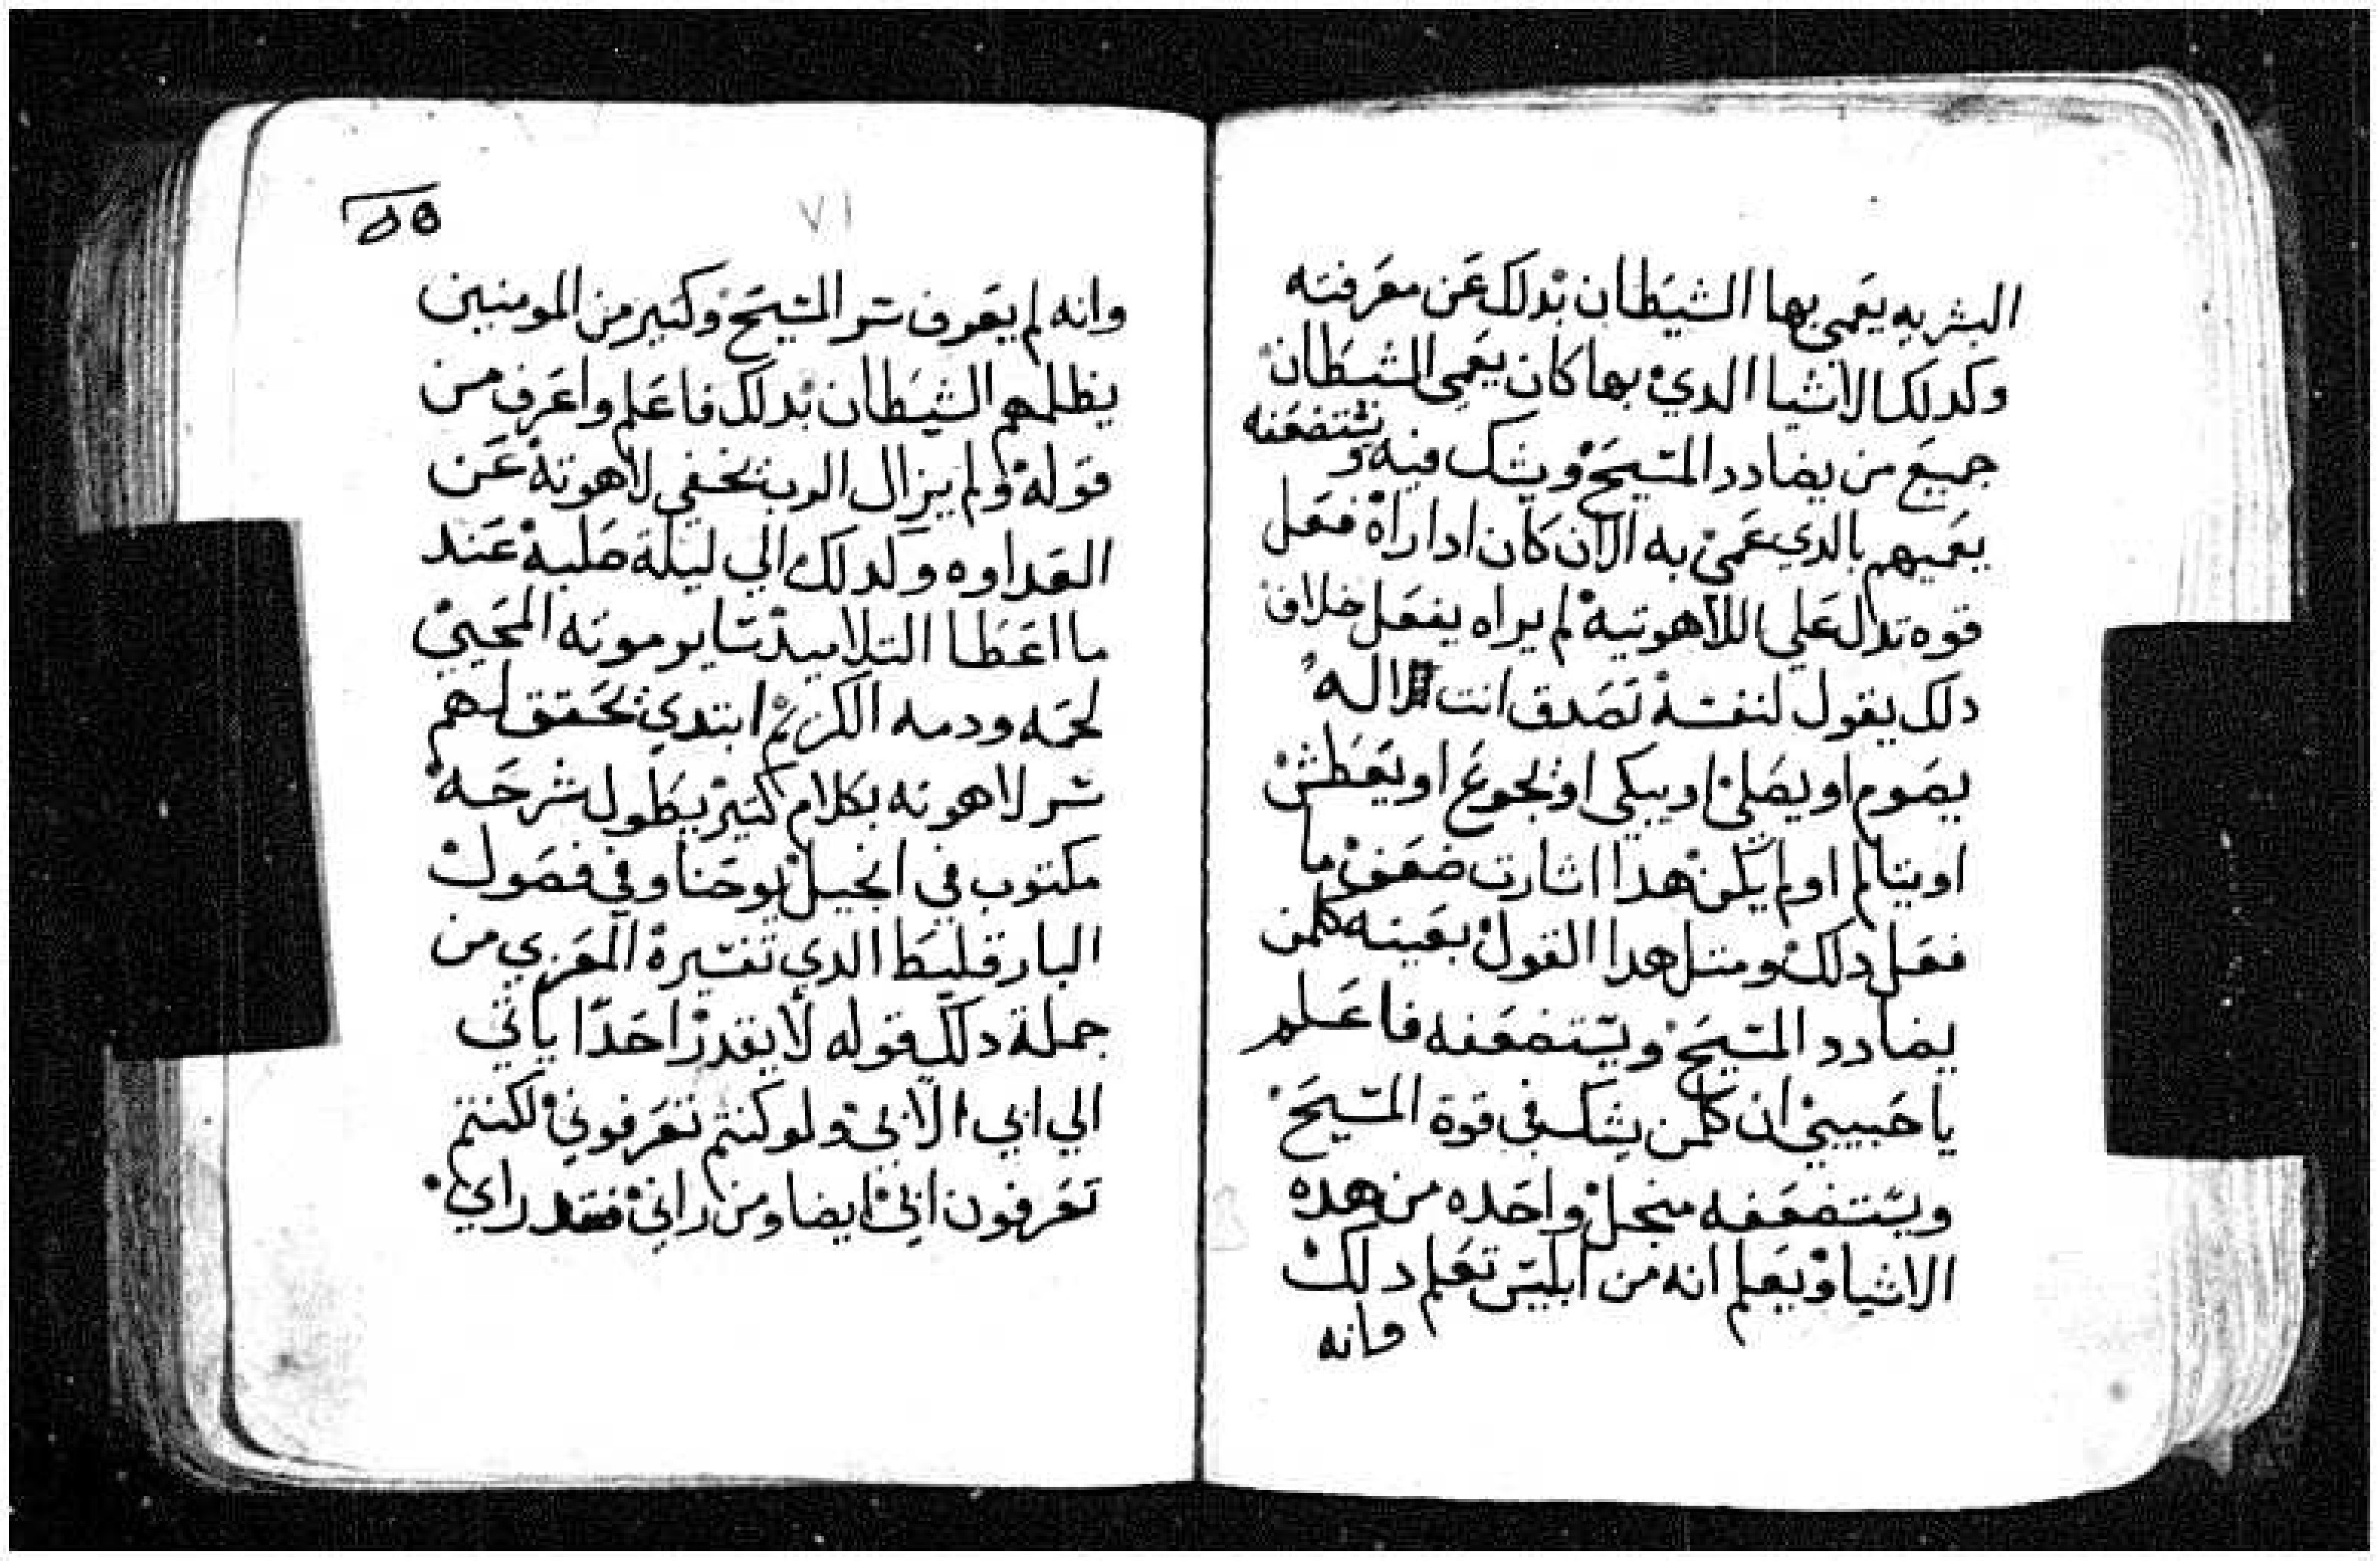 البشريه يعمي بها الشيطان بدلك عن معرفته
وكدلك الاشيا الدي بها كان يعمي الشيطان
جميع من يضادد المسيح ويشك فيه ويستضعفه
يعميهم بالدي عمي به الان كان ادا راه فعل
قوه تدل علي اللاهوتيه لم يراه يفعل خلاف
دلك يقول لنفسه تصدق انت اله
يصوم او يصلي او يبكي او يجوع او يعطش
او يتالم اولم يكن هدا اشارت ضعف ما
فعل دلك ومتل هدا القول بعينه كلمن
يضادد المسيح ويستضعفه فاعلم
يا حبيبي ان كلمن يشك في قوة المسيح
ويستضعفه منجل واحده من هده
الاشيا ويعلم انه من ابليس تعلم دلك
وانه
٧١
وانه لم يعرف سر المسيح وكتير من المومنين
يظلمهم الشيطان بدلك فاعلم واعرف من
قوله ولم يزال الرب يخفي لاهوته عن
العداوه ولدلك الي ليلة صلبه عند
ما اعطا التلاميد سايرمونه المحيي
لحمه ودمه الكريم ابتدي يحقق لهم
سر لاهوته بكلام كتير يطول شرحه
مكتوب في انجيل يوحنا وفي فصول
البارقليط الدي تفسيره المعزي من
جملة دلك قوله لا يقدر احدا ياتي
الي ابي الا بي ولو كنتم تعرفوني لكنتم
تعرفون ابي ايضا ومن راني فقد راي